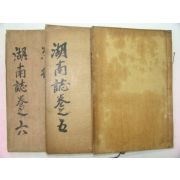 湖南誌卷之五
湖南誌卷之六